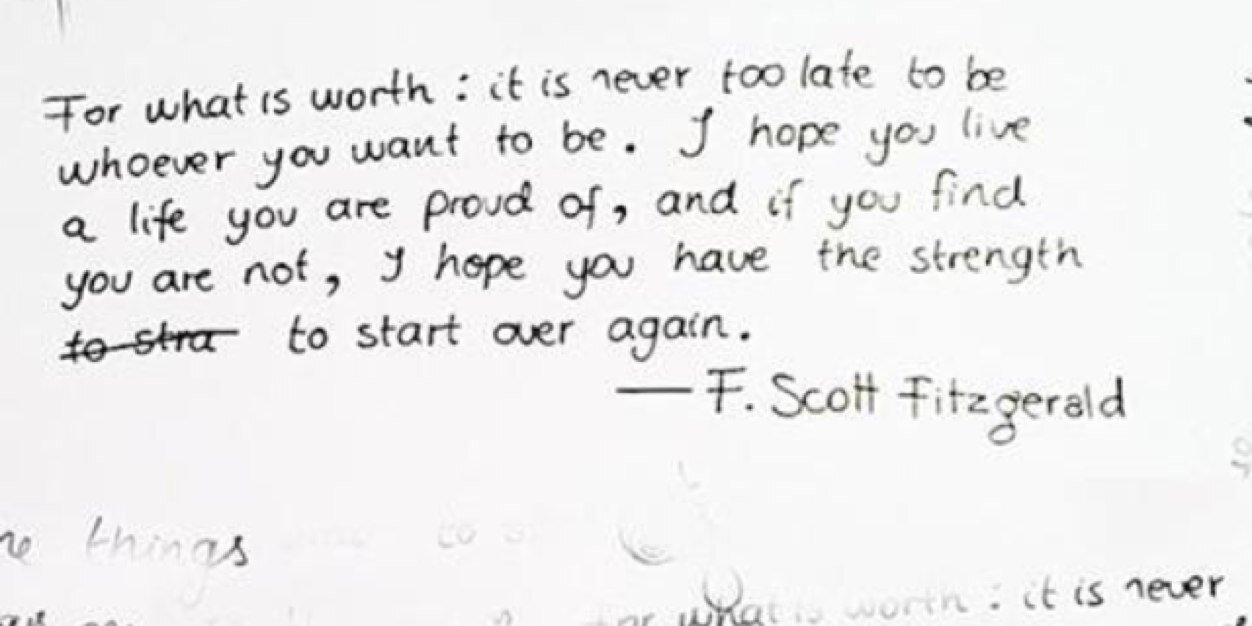 For what is worth : it is never too late to be
whoever you want to be. I hope you live
a life you are proud of, and if you find
you are not, I hope you have the strength
~~to stra~~ to start over again.
— F. Scott Fitzgerald
things
what is worth : it is never